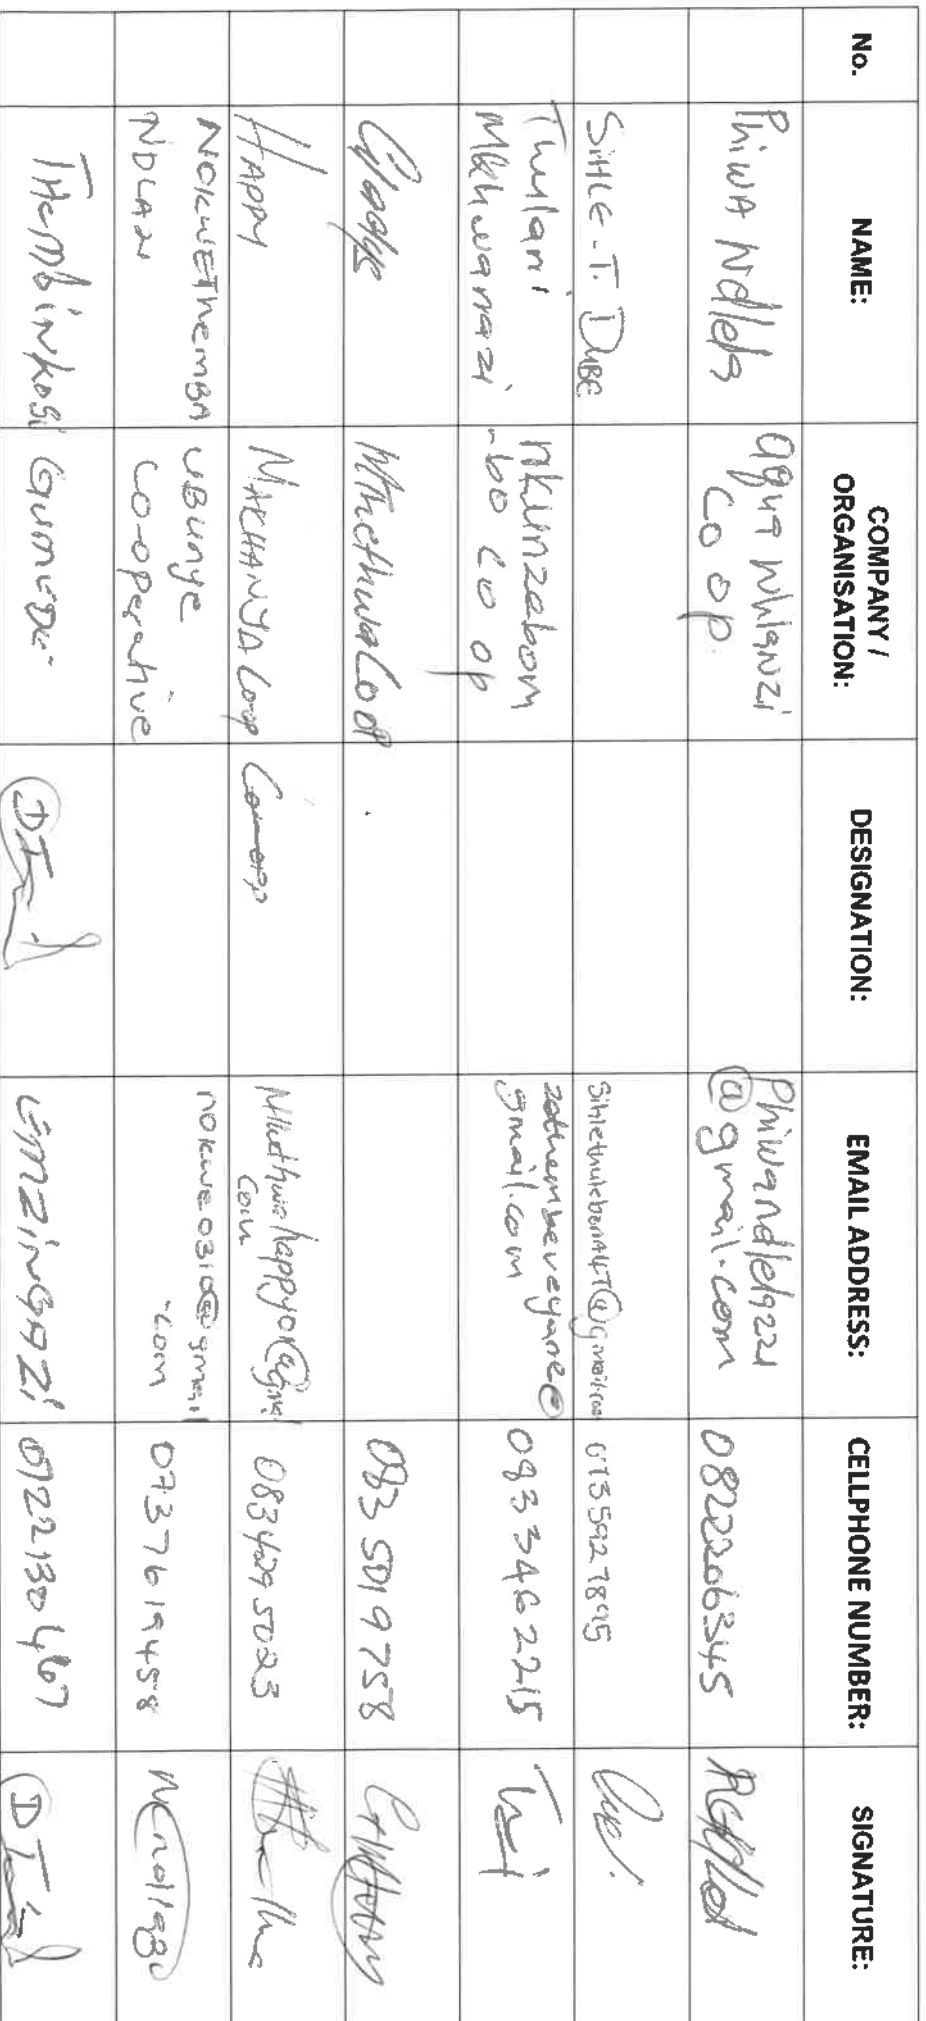 No. NAME: COMPANY / ORGANISATION: DESIGNATION: EMAIL ADDRESS: CELLPHONE NUMBER: SIGNATURE:
Phiwa Ndlela
Co op
Phiwandlela221
@gmail.com
0822206345
SiHLE-T. DUBE
@gmail.com
0735927895
Thulani
Mkhwanazi
nkunzebom
-bo co op
zothembeveyane@
gmail.com
0833462215
Gladys
Mthethwa Coop
083 5019758
HAPPY
MAKHANYA Coop
083 429 5023
NOKWEThemBA
UBunye
co-operative
nokwe0310@gmail
-com
0737619458
THembinkosi GUMEDE
UMZINGAZI
0722130467